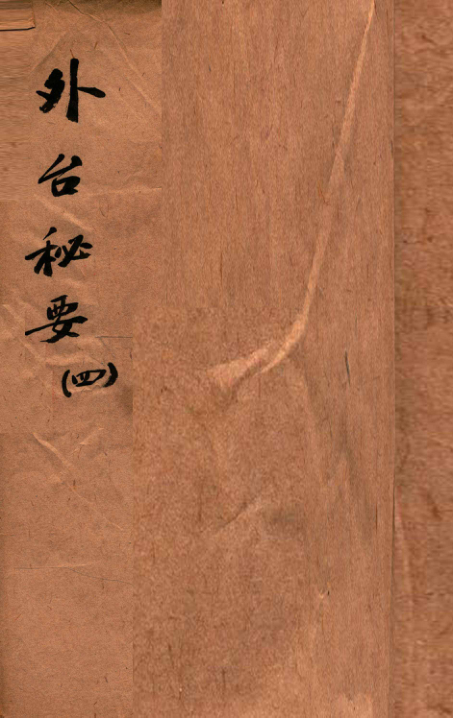 外台秘要
(四)